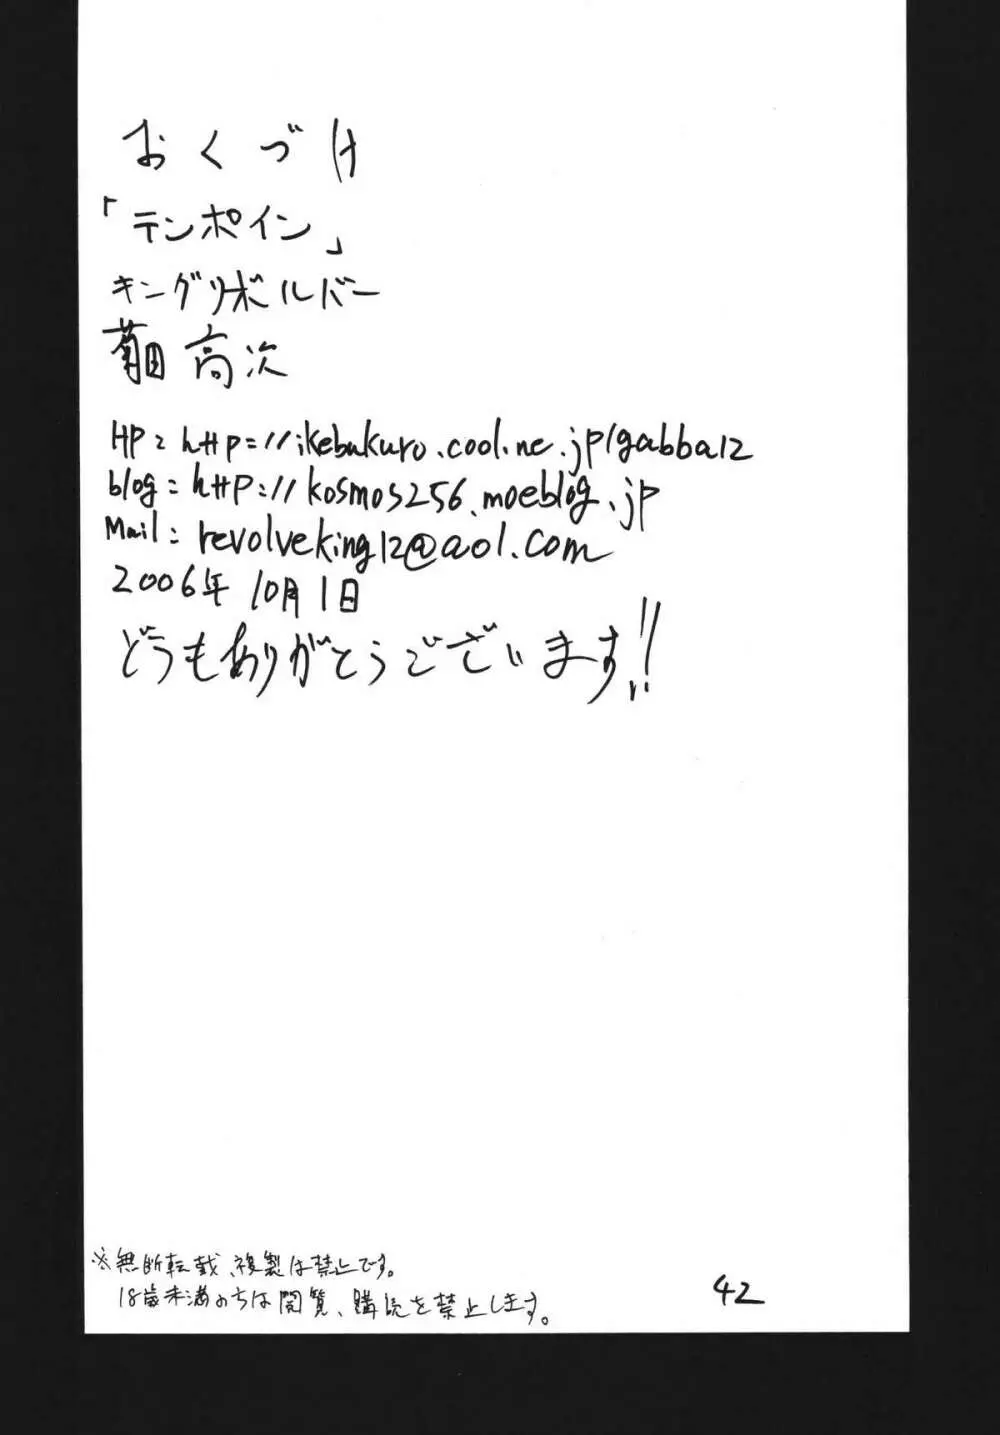 おくづけ
「テンポイン」
キングリボルバー
菊田高次
HP: http://ikebukuro.cool.ne.jp/gabba12
blog: http://kosmos256.moeblog.jp
Mail: revolveking12@aol.com
2006年10月1日
どうもありがとうございます!!
※無断転載、複製は禁止です。
18歳未満の方は閲覧、購読を禁止します。
42